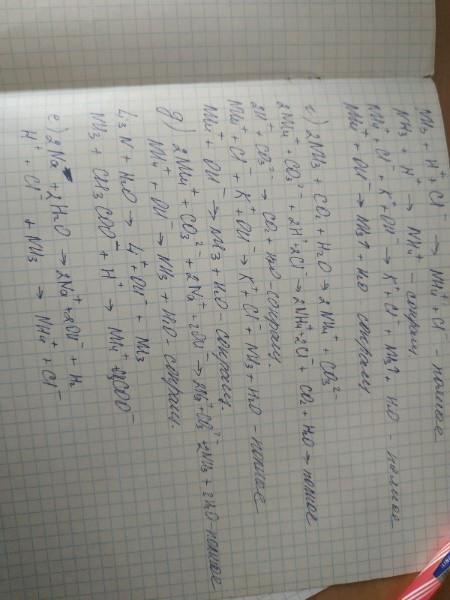 NH₃ + H⁺ + Cl⁻ → NH₄⁺ + Cl⁻ - полное
NH₃ + H⁺ → NH₄⁺ - сокращ
NH₄⁺ + Cl⁻ + K⁺ + OH⁻ → K⁺ + Cl⁻ + NH₃↑ + H₂O - полное
NH₄⁺ + OH⁻ → NH₃↑ + H₂O сокращ
г) 2NH₃ + CO₂ + H₂O → 2NH₄⁺ + CO₃²⁻
2NH₄⁺ + CO₃²⁻ + 2H⁺ 2Cl⁻ → 2NH₄⁺ 2Cl⁻ + CO₂ + H₂O → полное
2H⁺ + CO₃²⁻ → CO₂ + H₂O - сокращ.
NH₄⁺ + Cl⁻ + K⁺ + OH⁻ → K⁺ + Cl⁻ + NH₃ + H₂O - полное
NH₄⁺ + OH⁻ → NH₃ + H₂O - сокращ.
д) 2NH₄⁺ + CO₃²⁻ + 2Na⁺ + 2OH⁻ → 2Na⁺ + CO₃²⁻ + 2NH₃ + 2H₂O - полное
NH₄⁺ + OH⁻ → NH₃ + H₂O - сокращ.
Li₃N + H₂O → Li⁺ + OH⁻ + NH₃
NH₃ + CH₃COO⁻ + H⁺ → NH₄⁺
е) 2Na + 2H₂O → 2Na⁺ + 2OH⁻ + H₂
H⁺ + Cl⁻ + NH₃ → NH₄⁺ + Cl⁻